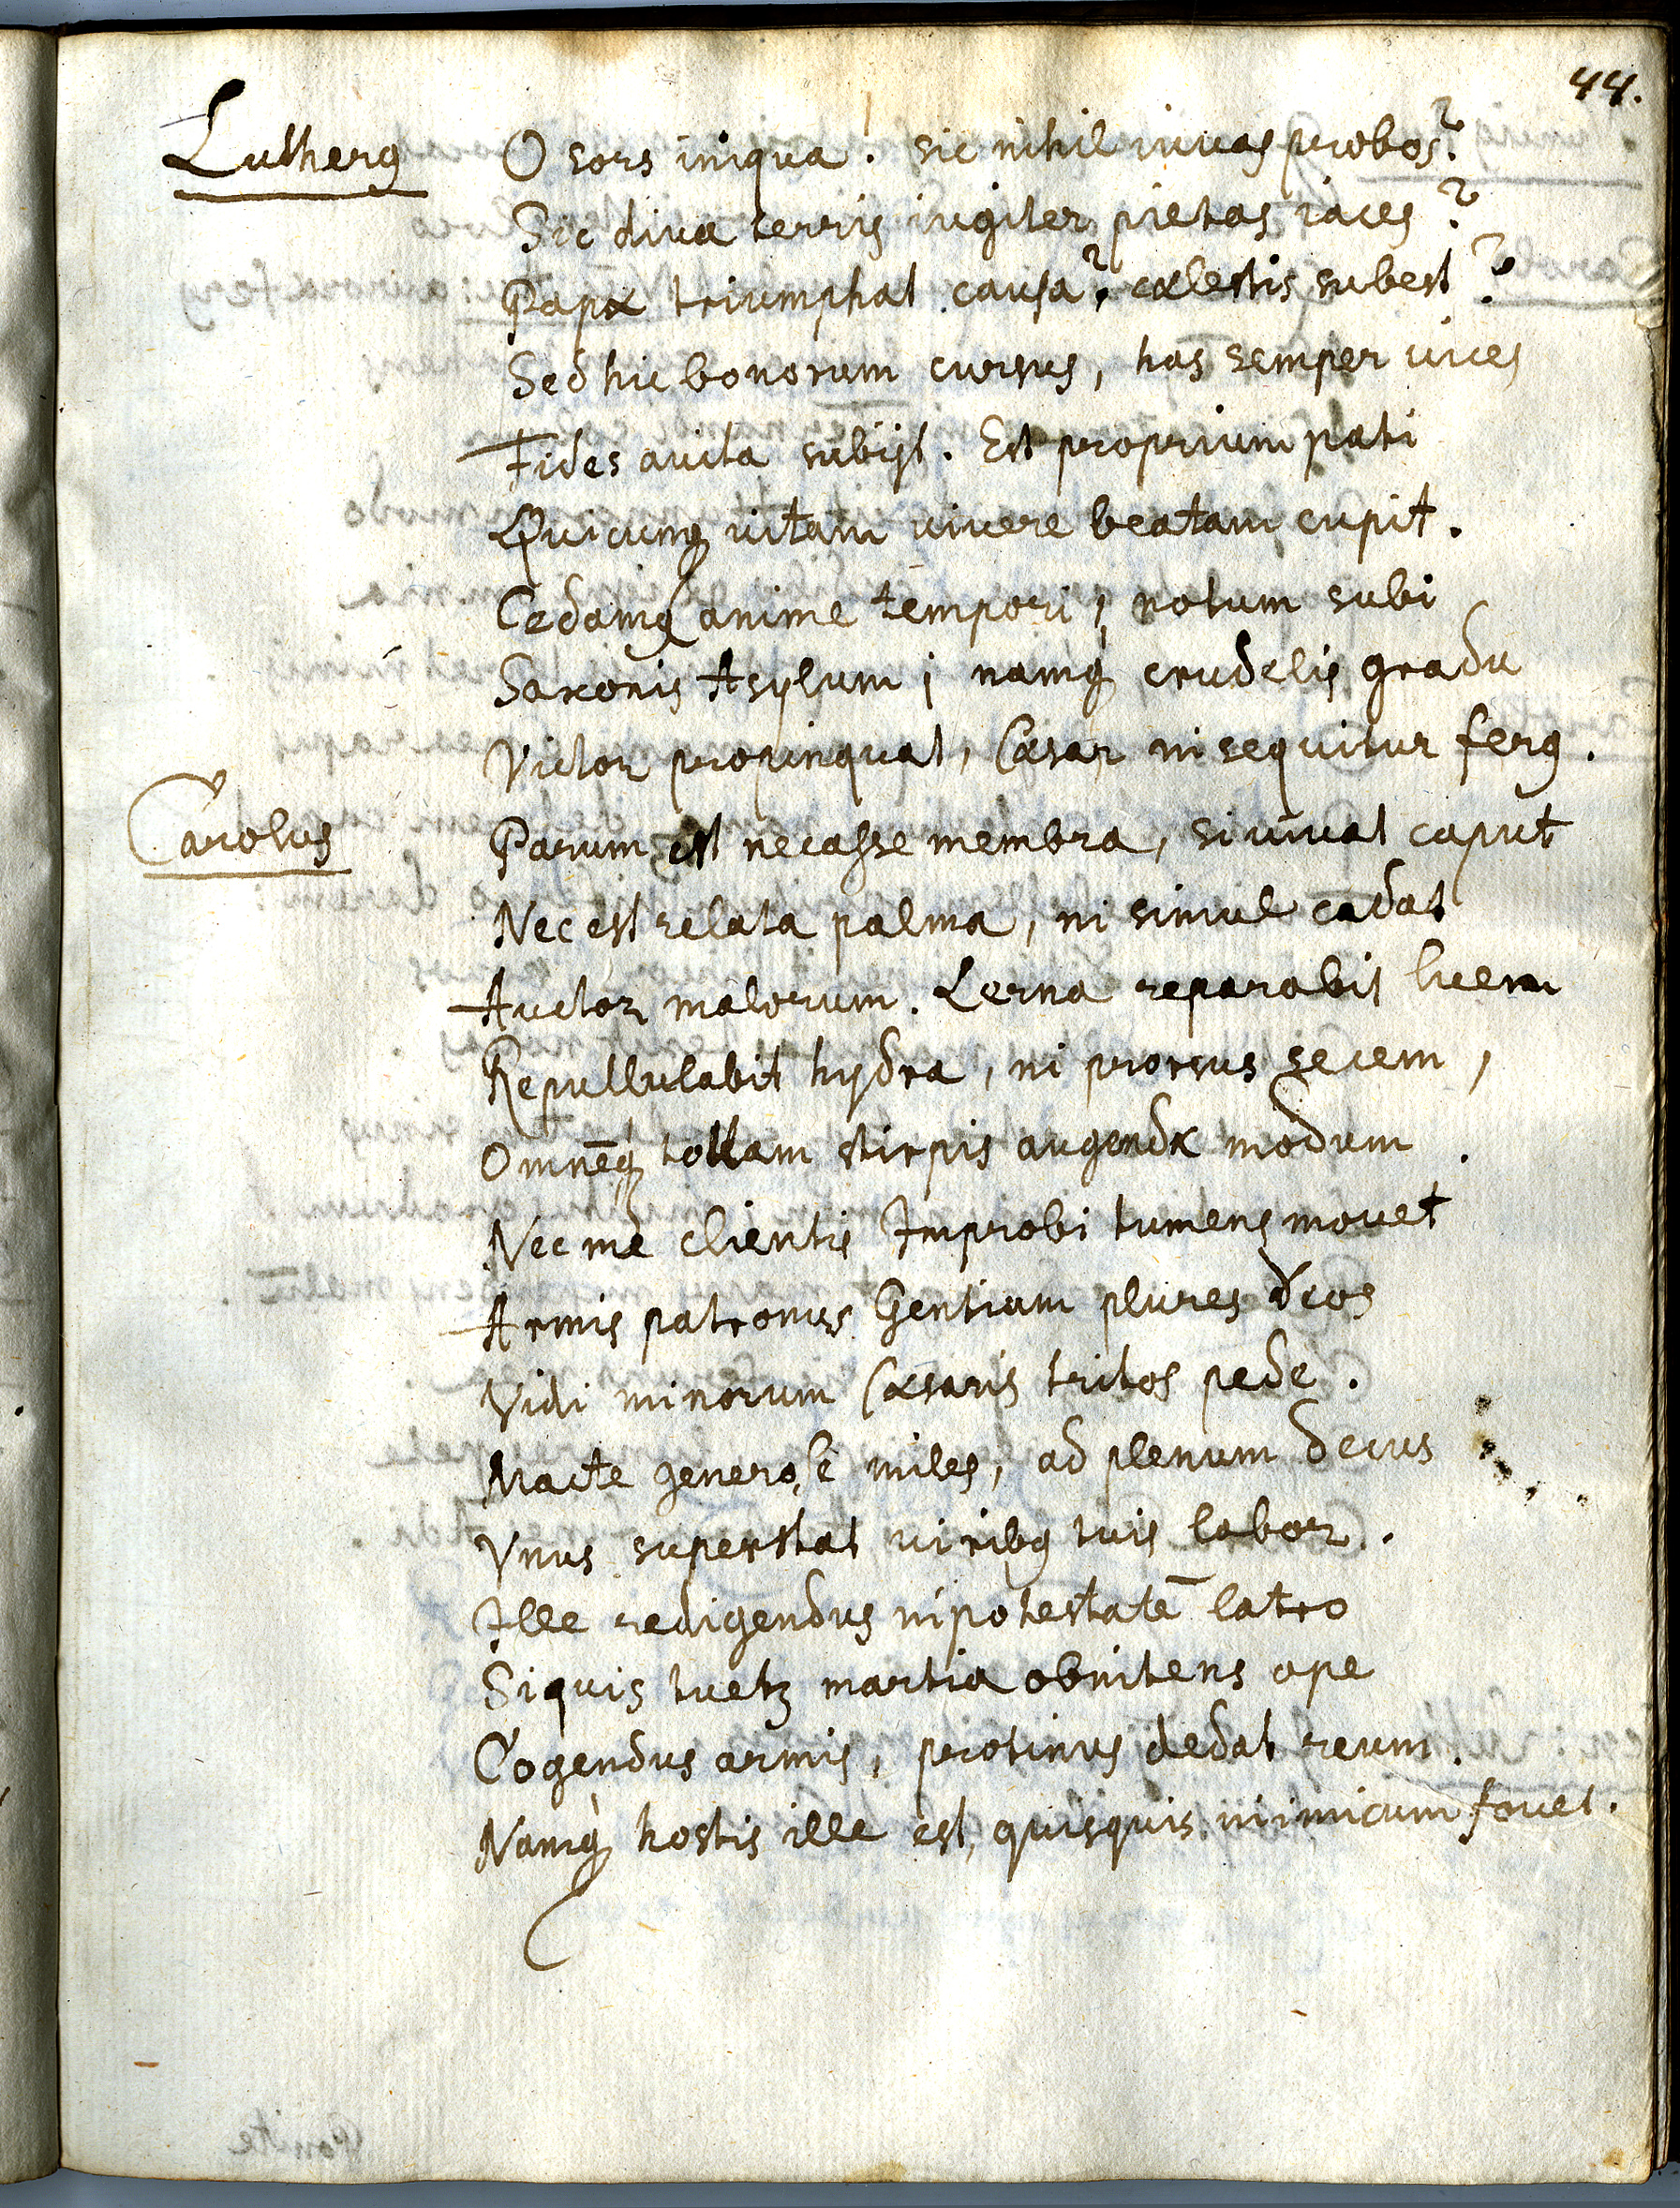 44.
Lutherꝰ O sors iniqua. sic nihil iuuas probos?
Sic diua terris iugiter pietas iaces?
Papæ triumphat causa? cælestis subest?
Sed hic bonorum cursus, has semper uices
Fides auita subijt. Est proprium pati
Quicunq uitam uiuere beatam cupit.
Cedamꝰ anime tempori, notum subi
Saxonis Asylum; namq crudelis gradu
Victor propinquat, Cæsar insequitur ferꝰ.
Carolus Parum est necasse membra, si uiuat caput
Nec est relata palma, ni simul cadat
Auctor malorum. Lerna reparabit luem
Repullulabit hydra, ni prorsus secem,
Omnēq tollam stirpis augendæ modum.
Nec me clientis Improbi tumens mouet
Armis patronus Gentium plures deos
Vidi minorum Cæsaris tritos pede.
Macte generose miles, ad plenum decus
Vnus superstat uiribꝰ tuis labor.
Ille redigendus in potestatē latro
Siquis tuetꝫ martia obnitens ope
Cogendus armis, protinus dedat reum.
Namq hostis ille est, quisquis inimicum fouet.